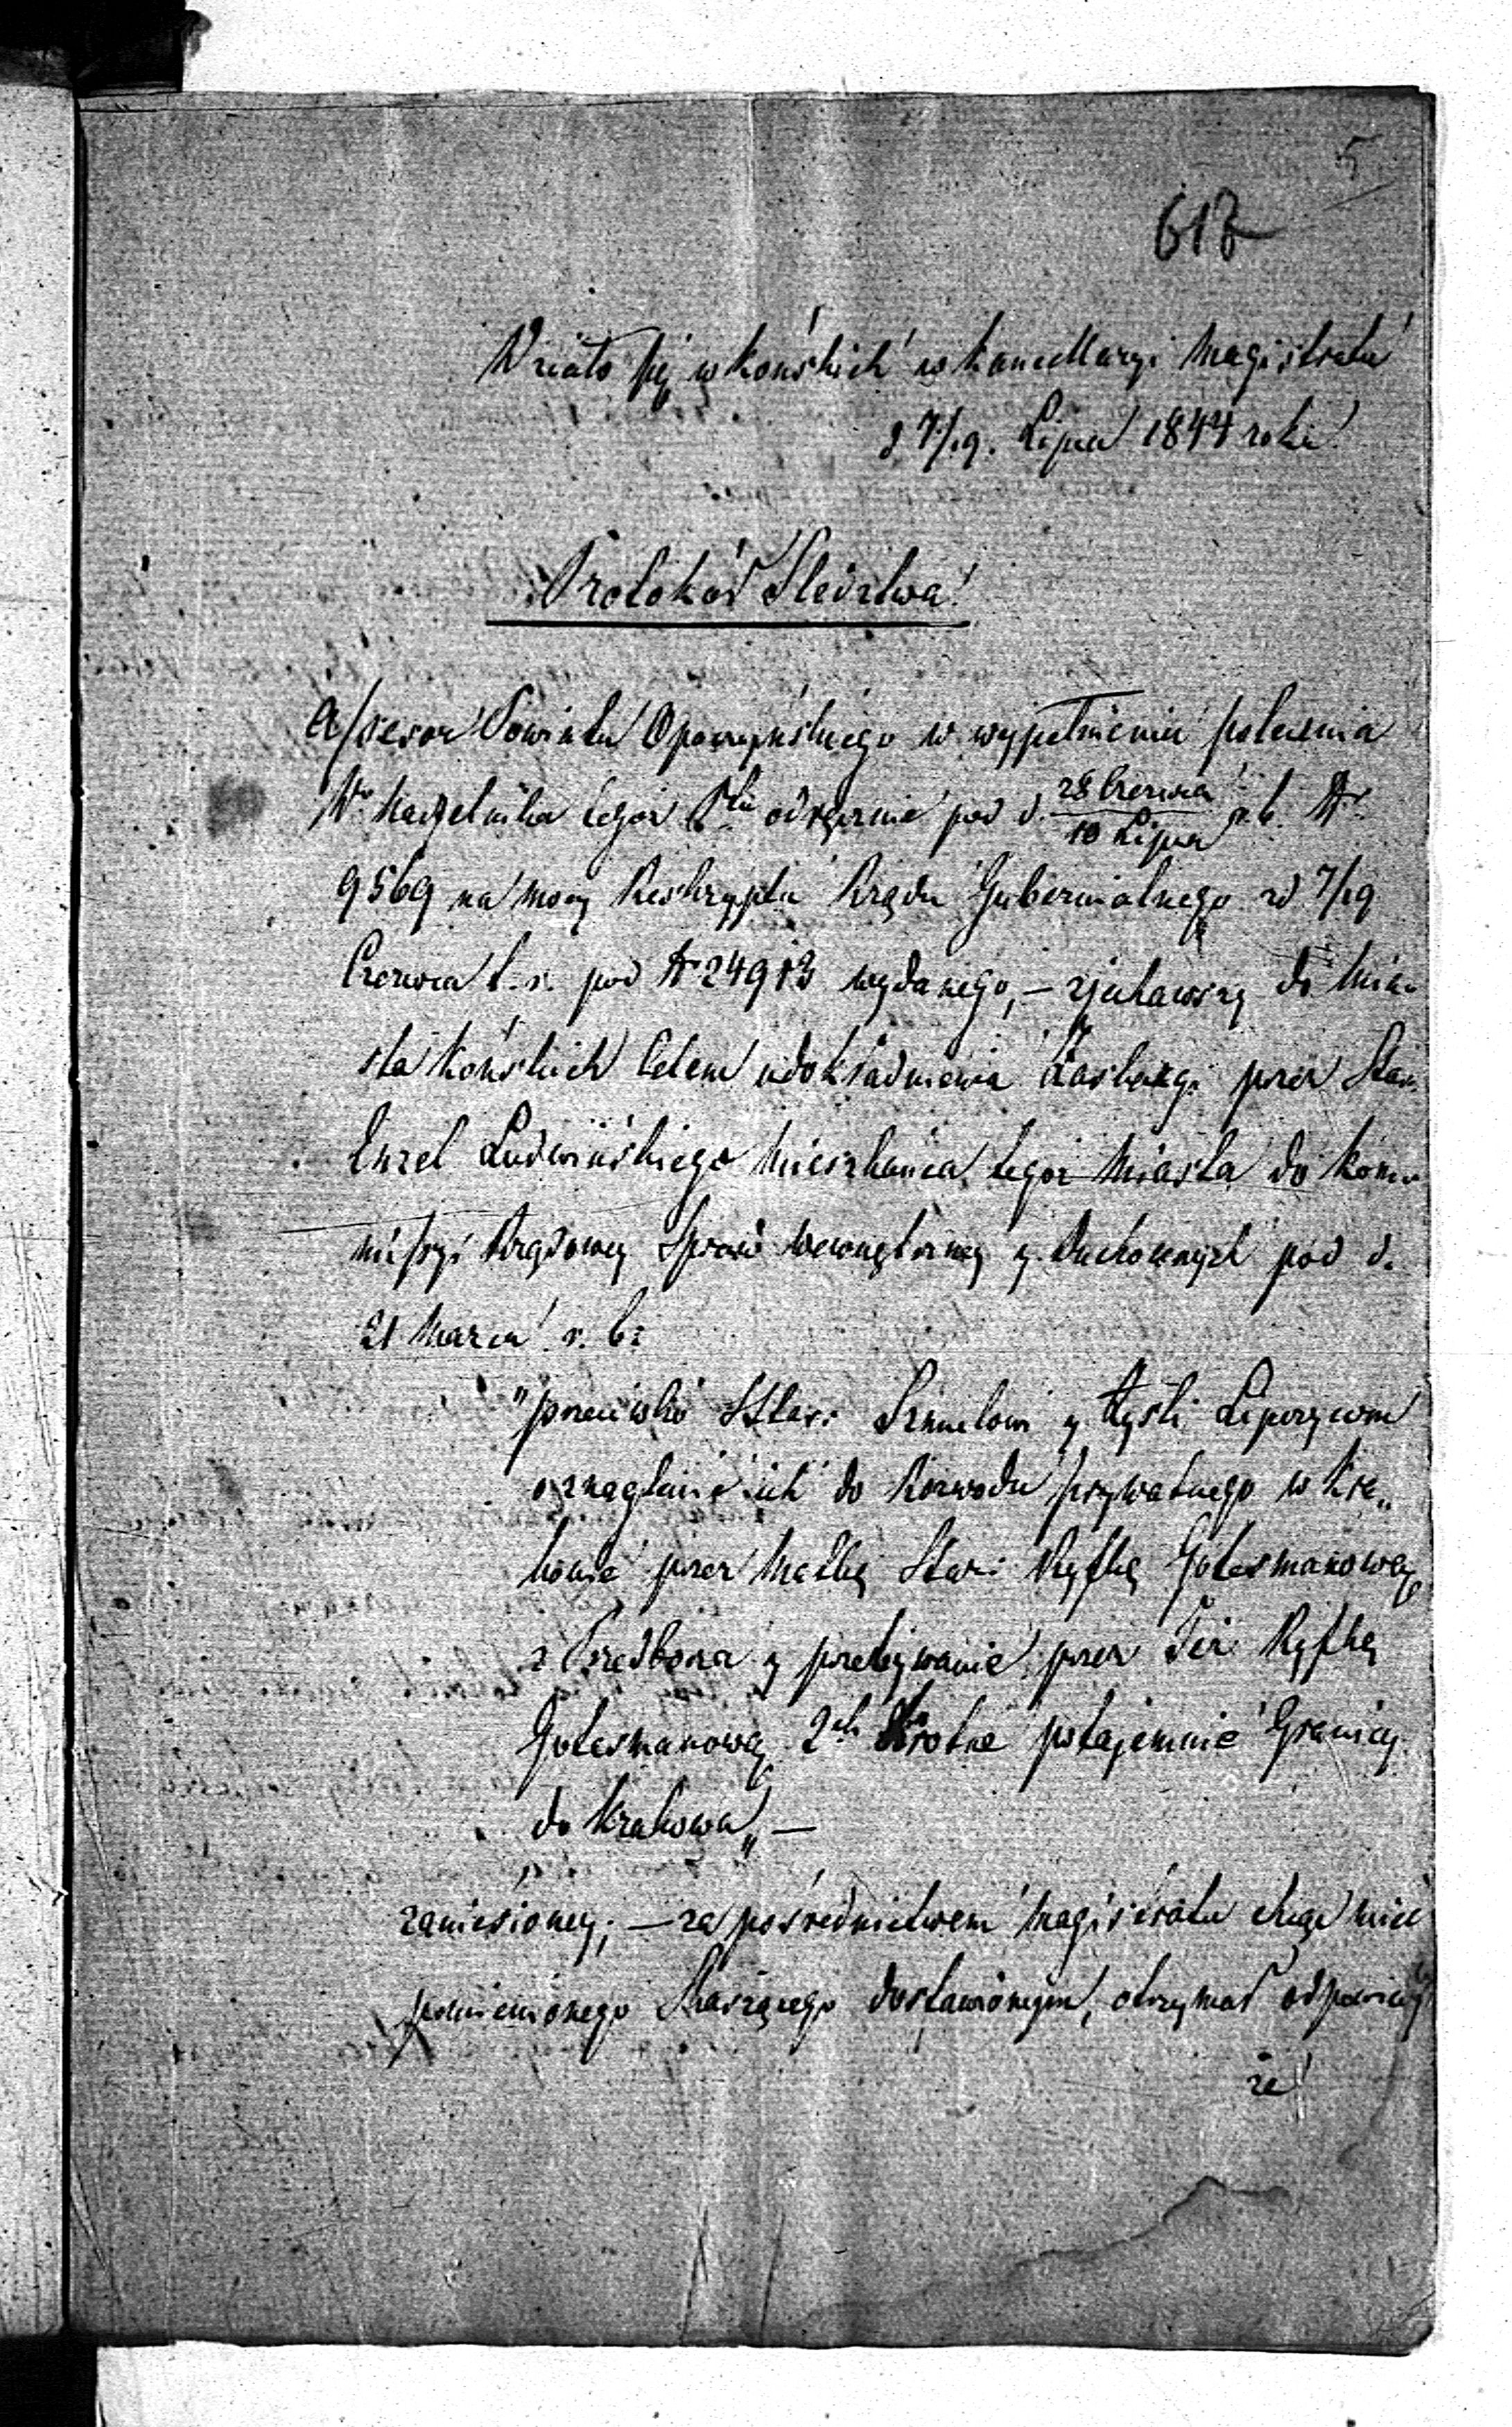 5
617
Działo się w Końskich w kancellaryi Magistratu
d 7/19. Lipca 1844 roku
Protokół Śledztwa
Assessor Powiatu Opoczyńskiego w wypełnieniu polecenia
Wo Naczelnika tegoż Ptu odręcznie pod d. 28 Czerwca/10 Lipca r. b. Nr
9569 na mocy Reskryptu Rządu Gubernialnego zd 7/19
Czerwca b. r. pod Nr 24913 wydanego, — zjechawszy do Mia-
sta Końskich celem udokładnienia Zaskargi przez Star.
Enzel Ludwińskiego Mieszkańca tegoż Miasta do Kom-
missyi Rządowey Spraw Wewnętrznych y Duchownych pod d.
21 Marca r. b:
„przeciwko Star: Szmulowi y Łysli Lipszycom
o znaglenie ich do Rozwodu prywatnego w Kra„
kowie przez Matkę Star: Ryfkę Gotesmanową
z Przedborza y przebywanie przez Też Ryfkę
Gotesmanową 2ch Krotne potajemnie Granicy
do Krakowa„ —
zaniesioney; — za pośrednictwem Magistratu
pomienionego Skarżącego dostawionym, otrzymał odpowiedź
że